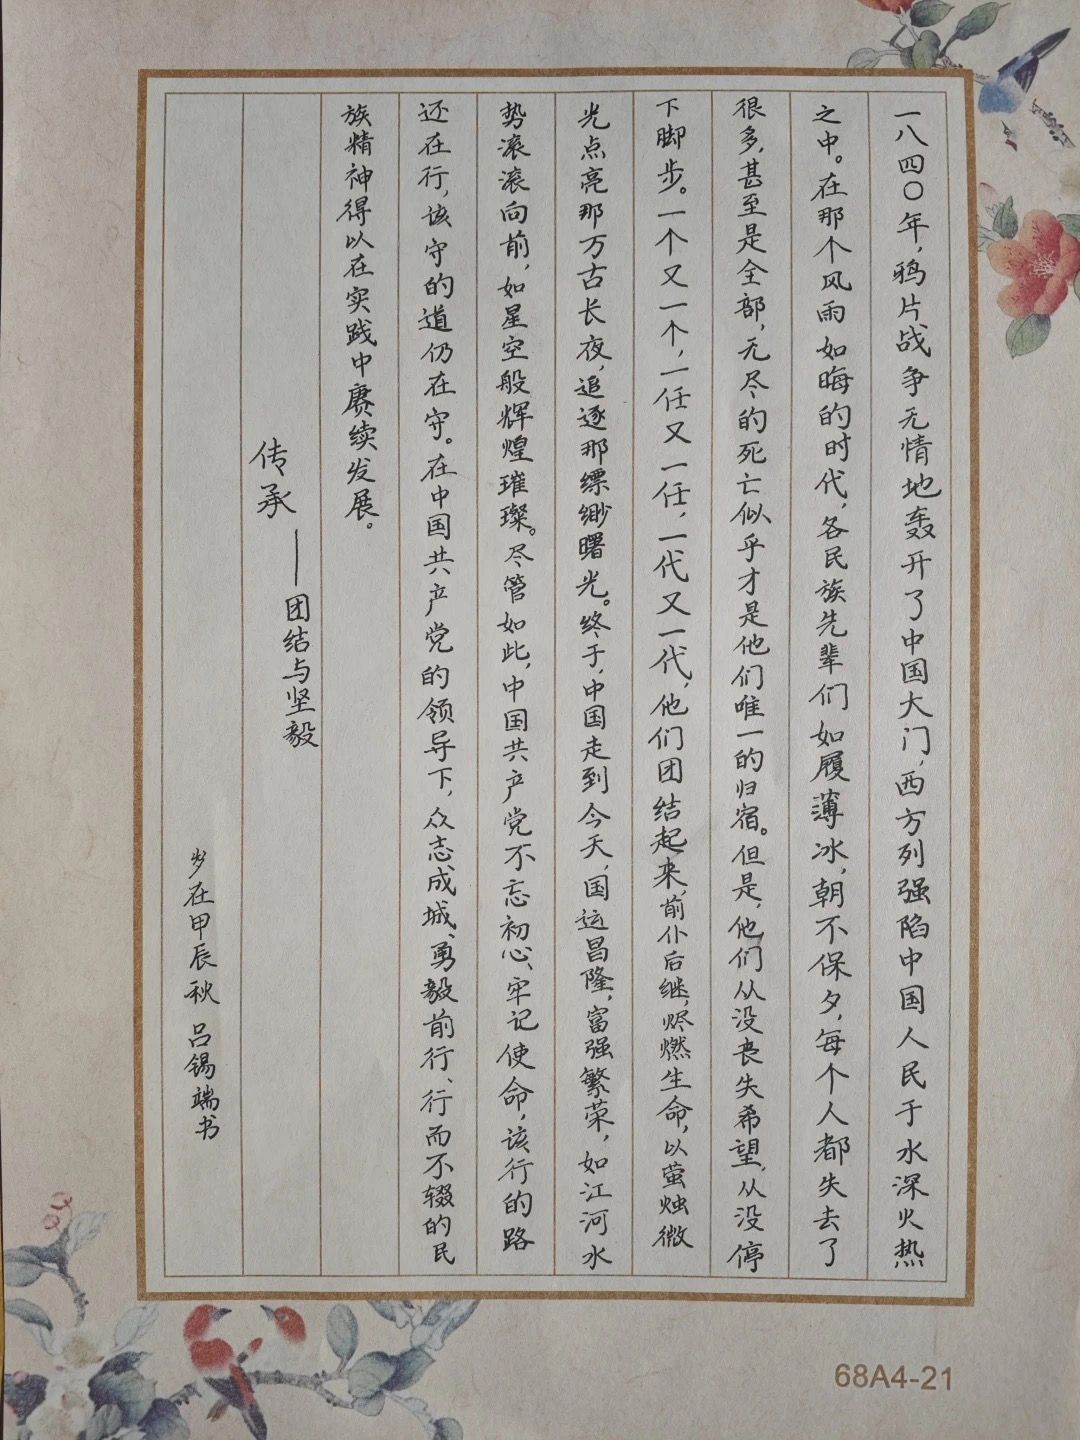 一八四〇年，鸦片战争无情地轰开了中国大门，西方列强陷中国人民于水深火热
之中。在那个风雨如晦的时代，各民族先辈们如履薄冰，朝不保夕，每个人都失去了
很多，甚至是全部，无尽的死亡似乎才是他们唯一的归宿。但是，他们从没丧失希望，从没停
下脚步。一个又一个，一任又一任，一代又一代，他们团结起来，前仆后继，烬燃生命，以萤烛微
光点亮那万古长夜，追逐那缥缈曙光。终于，中国走到今天，国运昌隆，富强繁荣，如江河水
势滚滚向前，如星空般辉煌璀璨。尽管如此，中国共产党不忘初心、牢记使命，该行的路
还在行，该守的道仍在守。在中国共产党的领导下，众志成城、勇毅前行、行而不辍的民
族精神得以在实践中赓续发展。
传承——团结与坚毅
岁在甲辰秋 吕锡端书
68A4-21